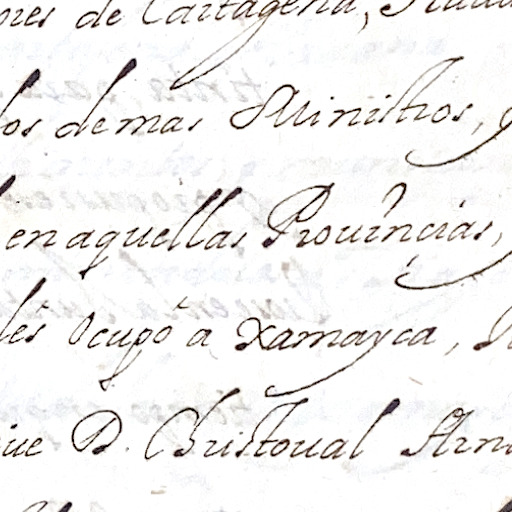 de Cartagena,
los demas Ministros,
en aquellas Prouincias,
ocupò a Xamayca,
que D. Christoual